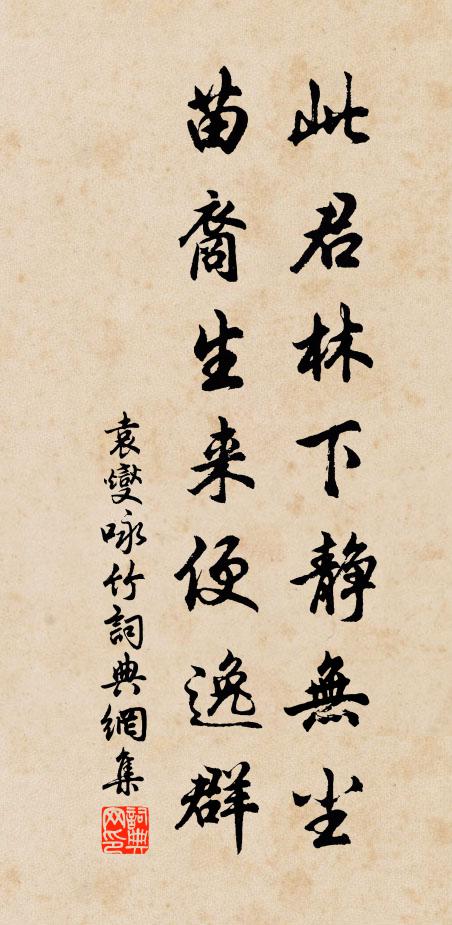 此君林下静無尘
苗裔生来便逸群
袁燮咏竹詞典網集
詞典网印